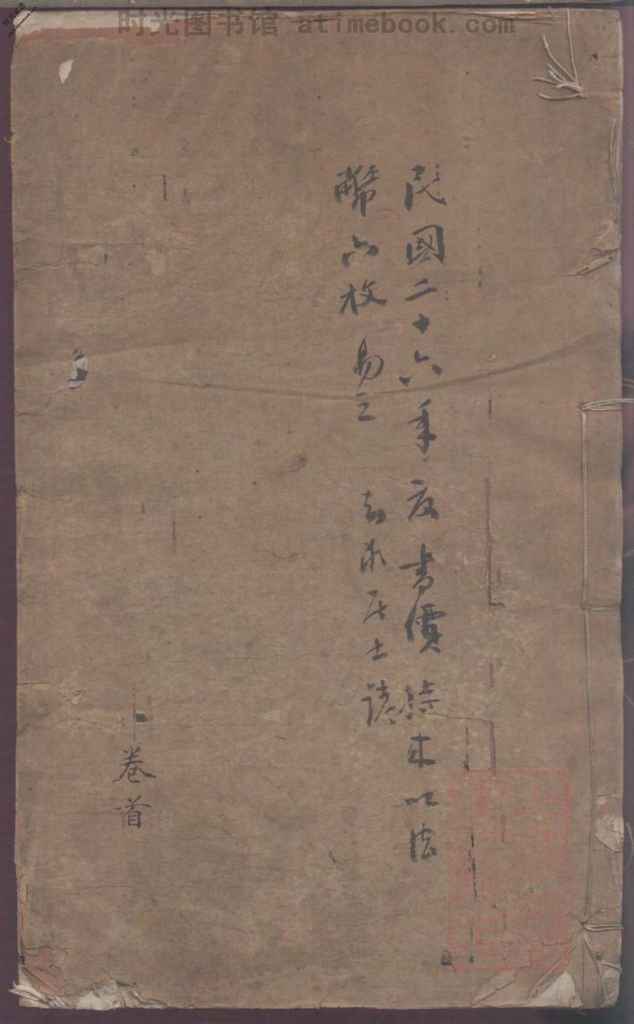 时光图书馆 atimebook.com
民國二十六年度書價 木以法
幣六枚易之 求居士識
卷首